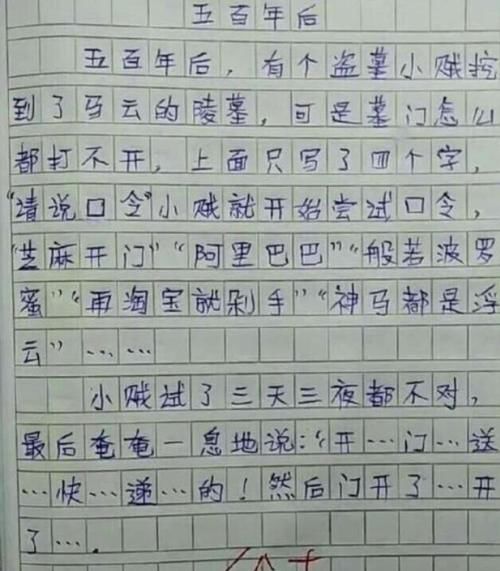 五百年后
五百年后，有个盗墓小贼挖
到了马云的陵墓，可是墓门怎么
都打不开，上面只写了四个字，
“请说口令”小贼就开始尝试口令，
“芝麻开门”“阿里巴巴”“般若波罗
蜜”“再淘宝就剁手”“神马都是浮
云”……
小贼试了三天三夜都不对，
最后奄奄一息地说：“开…门…送
…快…递…的！然后门开了…开
了….